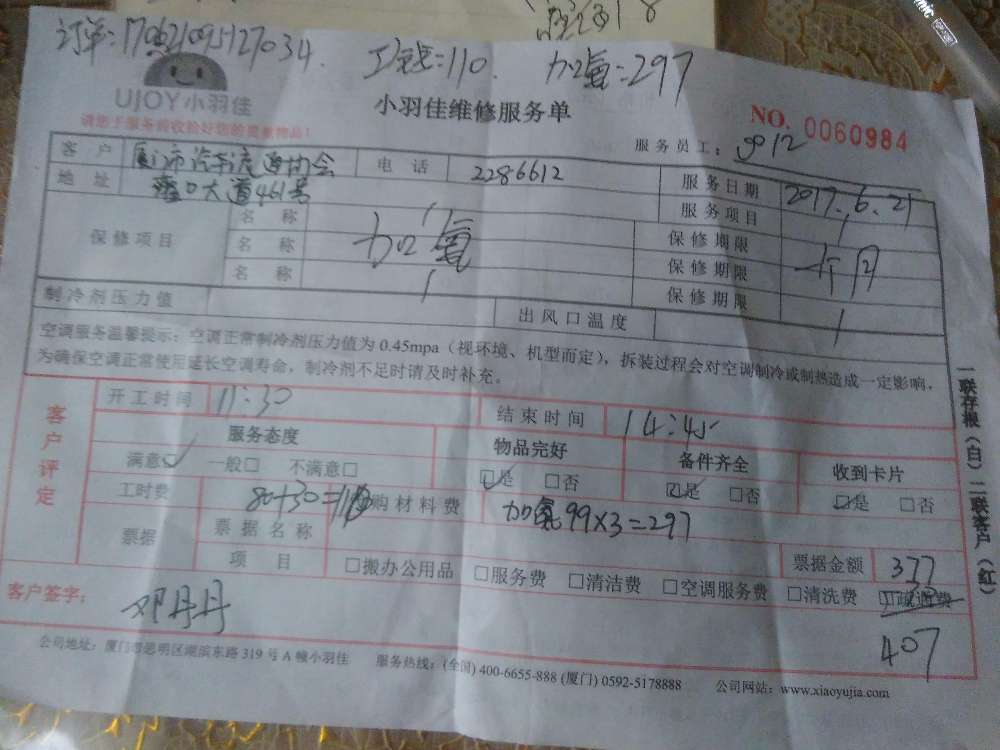 订单:17062109127034. 工钱=110. 加氟=297
UJOY小羽佳
小羽佳维修服务单
NO. 0060984
请您于服务前收捡好您的贵重物品!
服务员工: 9012
客户 厦门市汽车 协会 电话 2286612 服务日期 2017.6.21
地址 大道461号 服务项目
保修项目 名称 保修期限
名称 加氟 保修期限 一个月
名称 保修期限
制冷剂压力值 出风口温度
空调服务温馨提示: 空调正常制冷剂压力值为 0.45mpa(视环境、机型而定),拆装过程会对空调制冷或制热造成一定影响,
为确保空调正常使用延长空调寿命,制冷剂不足时请及时补充。
客户评定
开工时间 11:30 结束时间 14:45
服务态度 物品完好 备件齐全 收到卡片
满意☑ 一般□ 不满意□ ☑是 □否 ☑是 □否 ☑是 □否
工时费 80+30=110 购材料费 加氟99×3=297
票据 票据名称 票据金额 377
项目 □搬办公用品 □服务费 □清洁费 □空调服务费 □清洗费 □疏通费
客户签字: 邓丹丹 407
公司地址: 厦门市思明区湖滨东路 319 号 A 幢小羽佳 服务热线: (全国) 400-6655-888 (厦门) 0592-5178888 公司网站: www.xiaoyujia.com
一联存根(白) 二联客户(红)